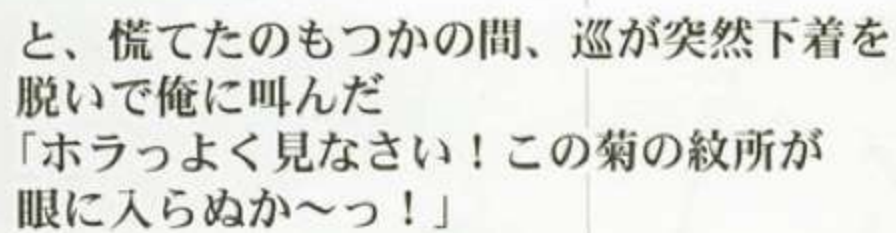 と、慌てたのもつかの間、巡が突然下着を
脱いで俺に叫んだ
「ホラっよく見なさい！この菊の紋所が
眼に入らぬか～っ！」